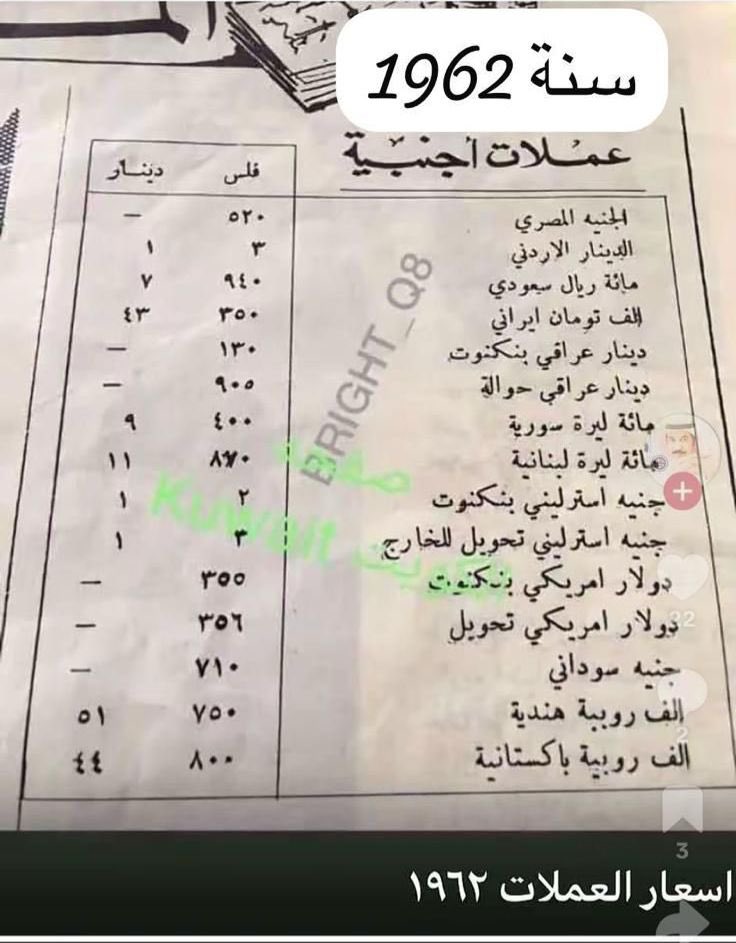 سنة 1962
عملات أجنبية
فلس دينار
الجنيه المصري ٥٢٠ —
الدينار الاردني ٣ ١
مائة ريال سعودي ٩٤٠ ٧
الف تومان ايراني ٣٥٠ ٤٣
دينار عراقي بنكنوت ١٣٠ —
دينار عراقي حوالة ٩٠٥ —
مائة ليرة سورية ٤٠٠ ٩
مائة ليرة لبنانية ١١
جنيه استرليني بنكنوت ٢ ١
جنيه استرليني تحويل للخارج ٣ ١
دولار امريكي بنكنوت ٣٥٥ —
دولار امريكي تحويل ٣٥٦ —
جنيه سوداني ٧١٠ —
الف روبية هندية ٧٥٠ ٥١
الف روبية باكستانية ٨٠٠ ٤٤
BRIGHT_Q8
صفحة
Kuwait الكويت
32
2
3
اسعار العملات ١٩٦٢